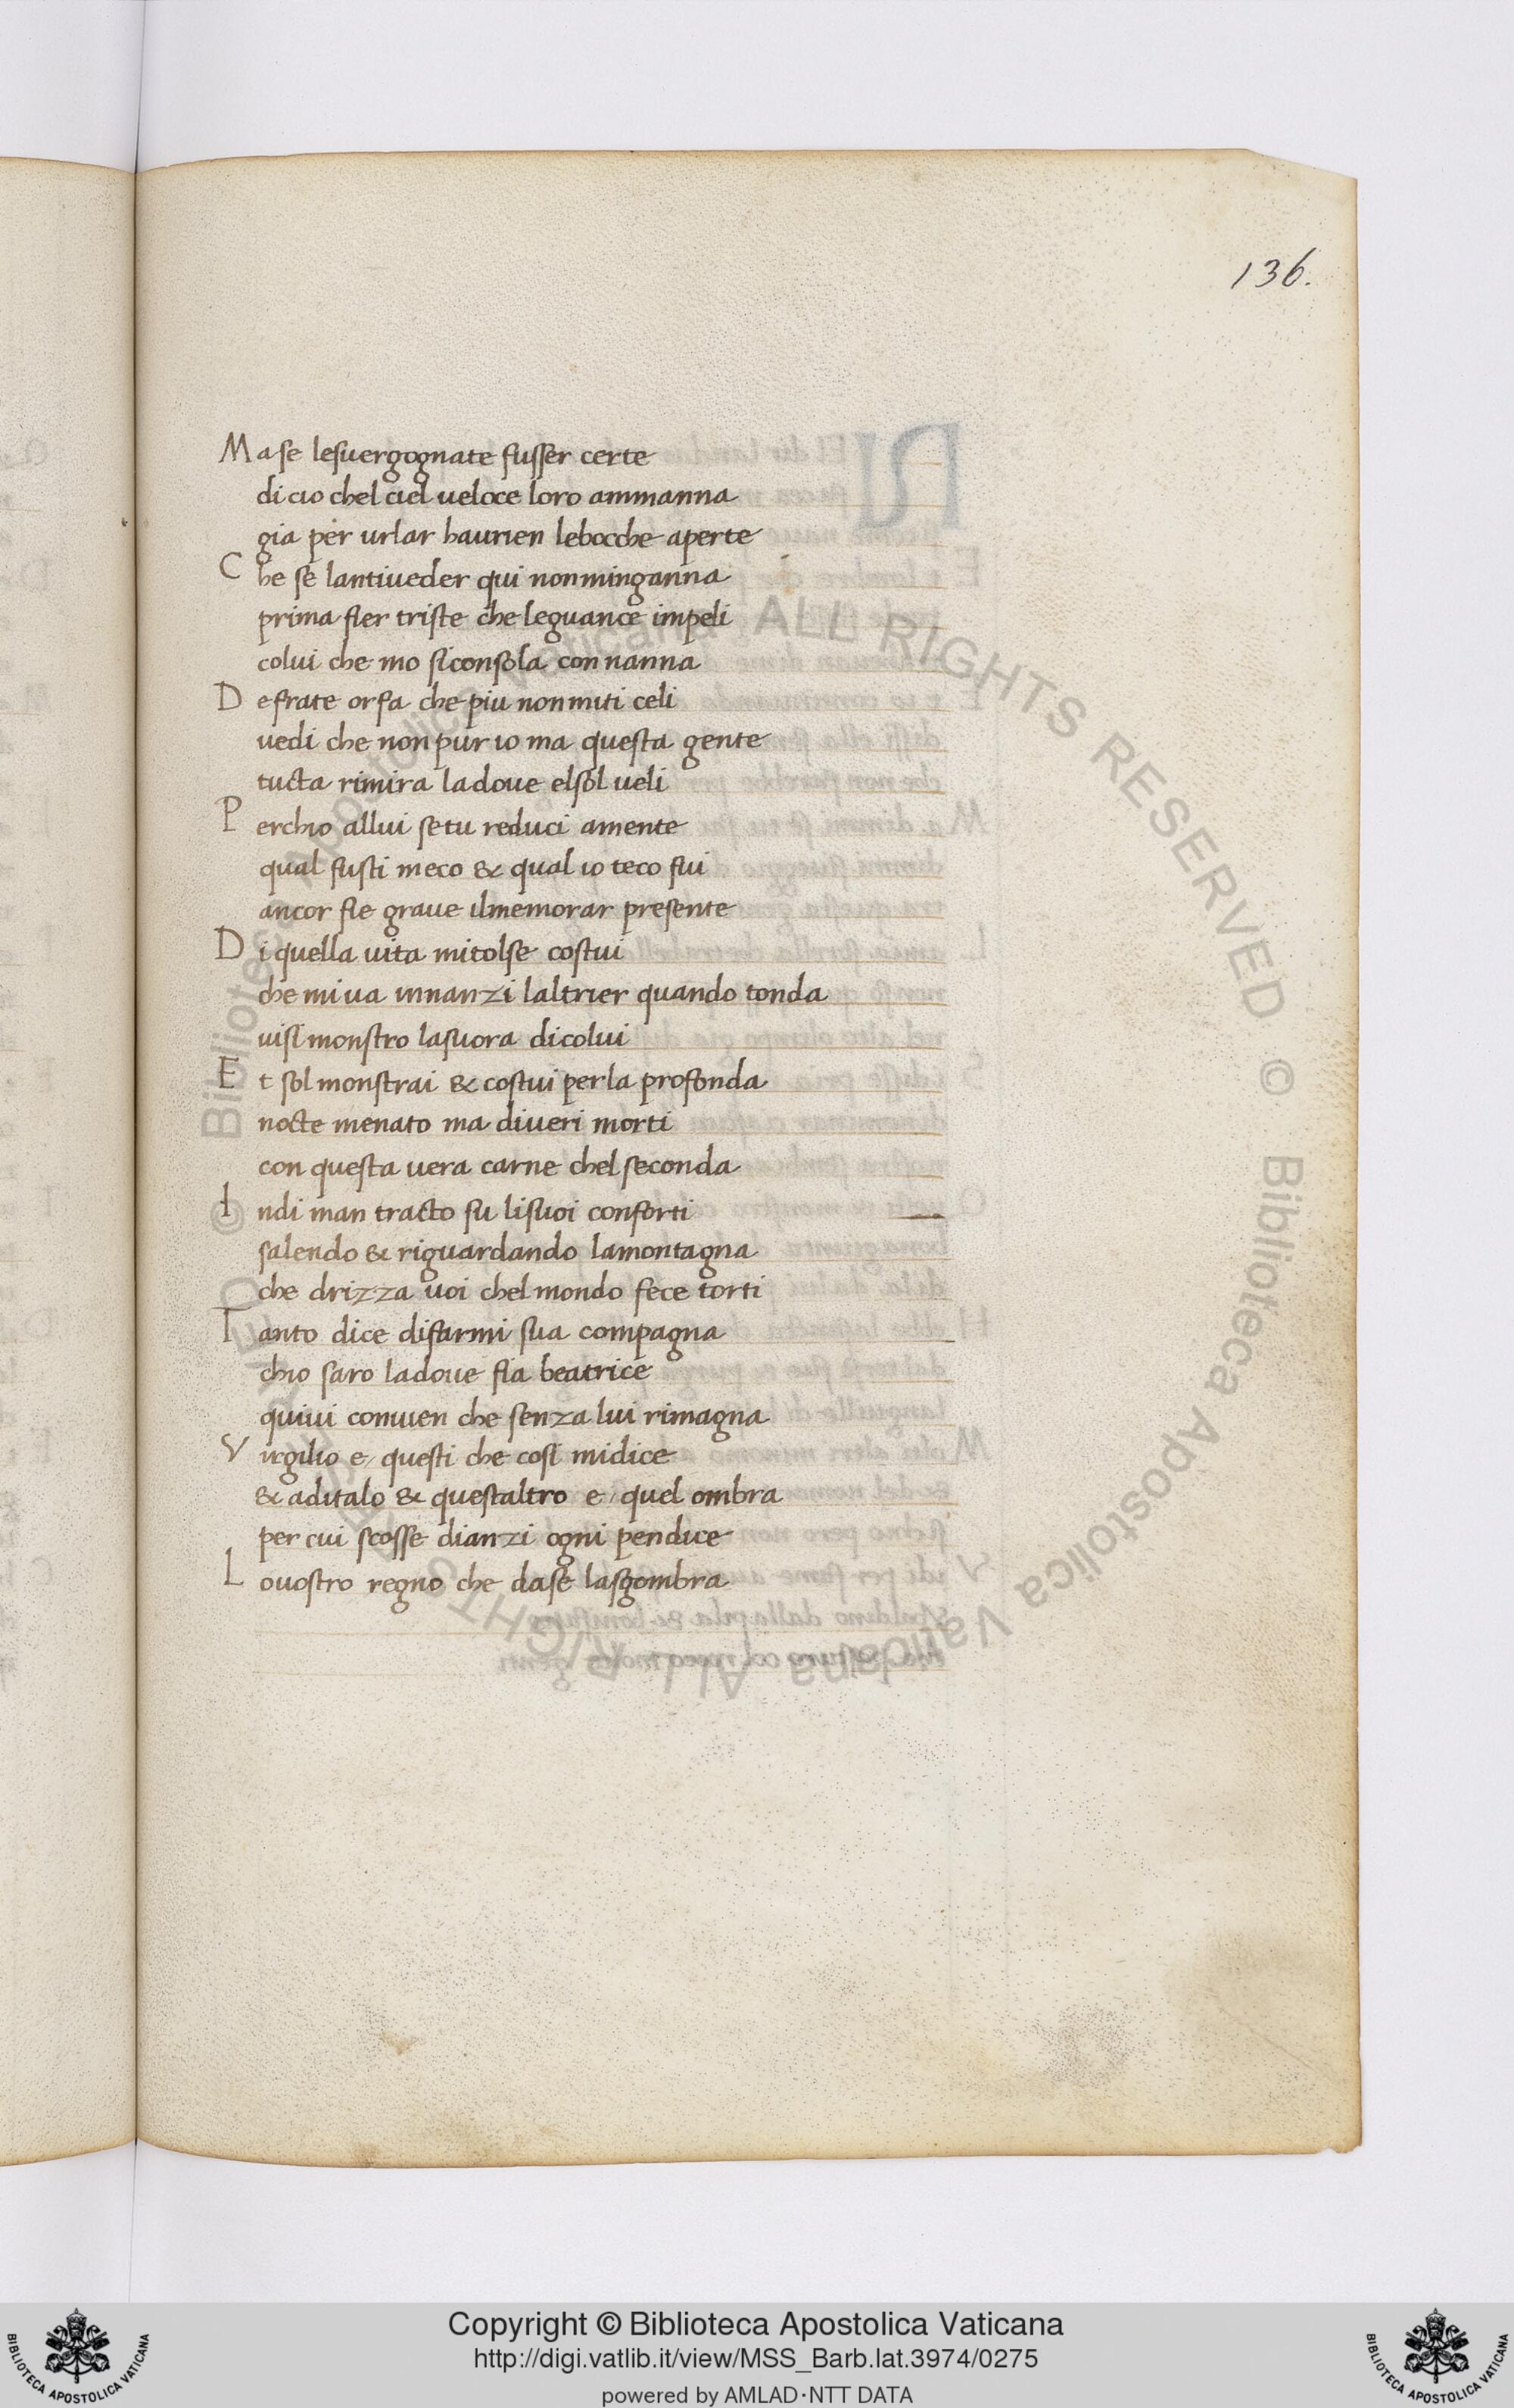 136.
Ma se lesuergognate fusser certe
di cio chel ciel ueloce loro ammanna
gia per urlar haurien lebocche aperte
Che se lantiueder qui nonminganna
prima fier triste che leguance impeli
colui che mo siconsola con nanna
De frate or fa che piu nonmiti celi
uedi che non pur io ma questa gente
tucta rimira ladoue elsol ueli
Perchio allui setu reduci amente
qual fusti meco & qual io teco fui
ancor fie graue ilmemorar presente
Di quella uita mitolse costui
che mi ua innanzi laltrier quando tonda
uisi monstro lasuora dicolui
Et sol monstrai & costui perla profonda
nocte menato ma diueri morti
con questa uera carne chel seconda
Indi man tracto su lisuoi conforti
salendo & riguardando lamontagna
che drizza uoi chel mondo fece torti
Tanto dice difarmi sua compagna
chio saro ladoue fia beatrice
quiui conuien che senza lui rimagna
Virgilio e questi che cosi midice
& aditalo & questaltro e quel ombra
per cui scosse dianzi ogni pendice
Lo uostro regno che dase lasgombra
© Biblioteca Apostolica Vaticana ALL RIGHTS RESERVED © Biblioteca Apostolica Vaticana ALL RIGHTS RESERVED
Copyright © Biblioteca Apostolica Vaticana
http://digi.vatlib.it/view/MSS_Barb.lat.3974/0275
powered by AMLAD·NTT DATA
BIBLIOTECA APOSTOLICA VATICANA
BIBLIOTECA APOSTOLICA VATICANA